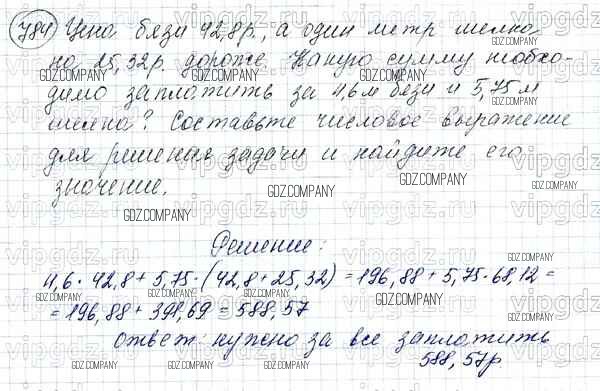 784 Цена бязи 42,8 р., а один метр шелка
на 25,32 р. дороже. Какую сумму необхо-
димо заплатить за 4,6 м бязи и 5,75 м
шелка? Составьте числовое выражение
для решения задачи и найдите его
значение.
Решение:
4,6 · 42,8 + 5,75 · (42,8 + 25,32) = 196,88 + 5,75 · 68,12 =
= 196,88 + 391,69 = 588,57
ответ: нужно за все заплатить
588,57р